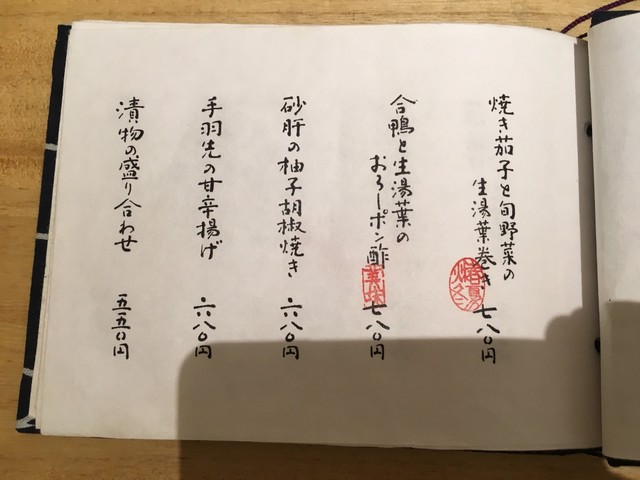 焼き茄子と旬野菜の
生湯葉巻き 七八〇円
合鴨と生湯葉の
おろしポン酢 七八〇円
砂肝の柚子胡椒焼き 六八〇円
手羽先の甘辛揚げ 六八〇円
漬物の盛り合わせ 五五〇円